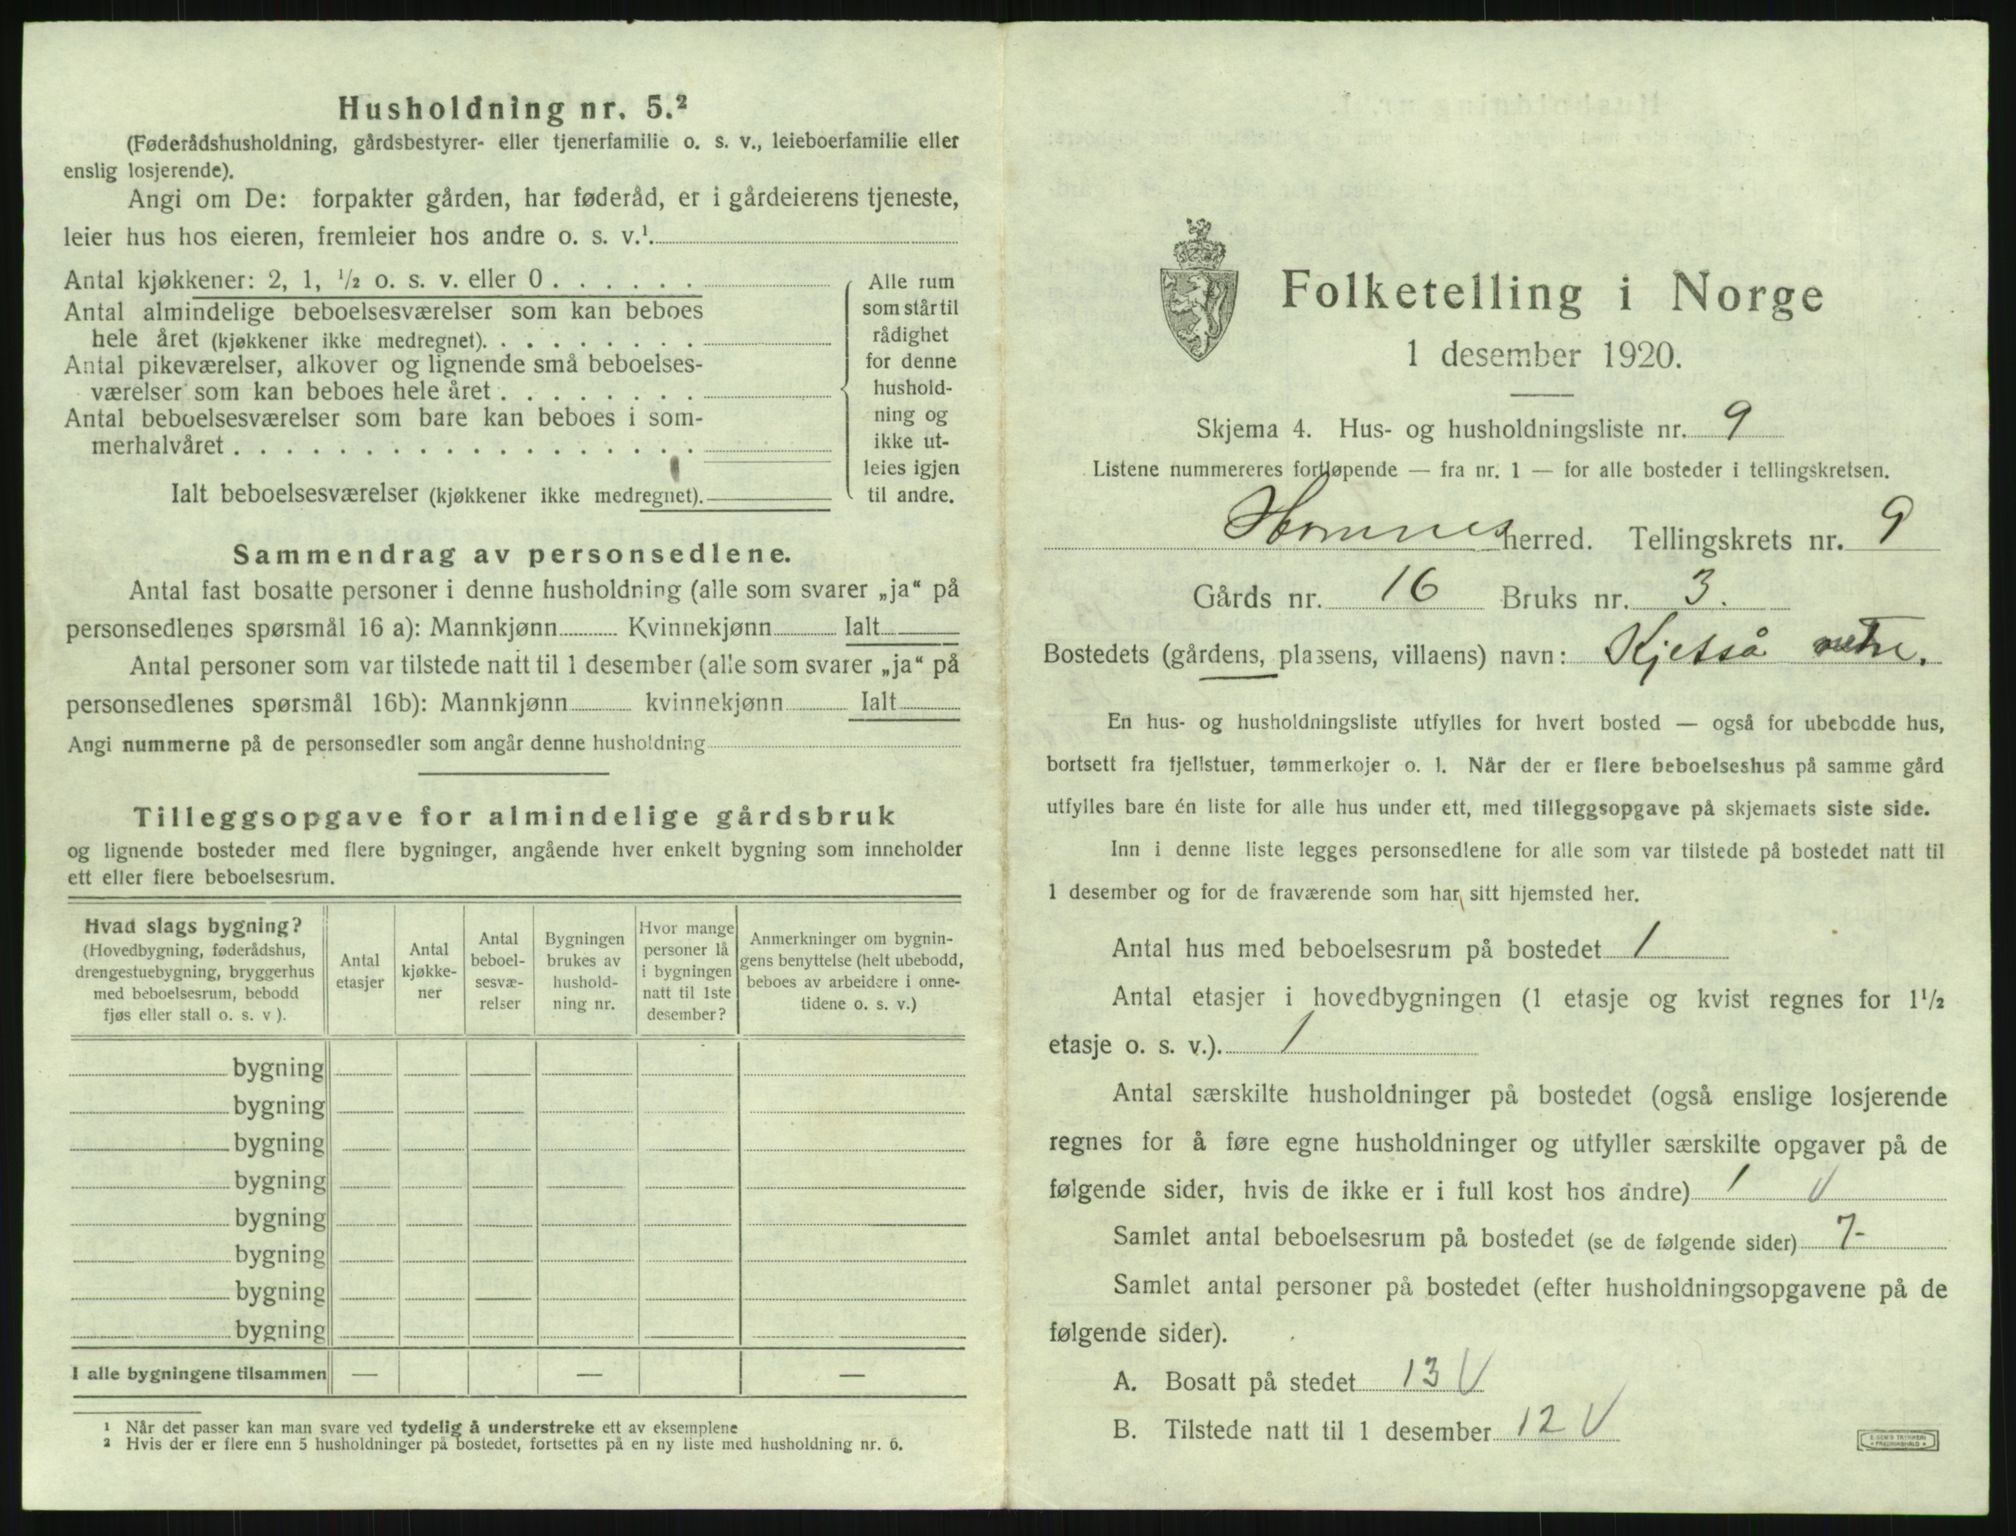 Husholdning nr. 5.²
(Føderådshusholdning, gårdsbestyrer- eller tjenerfamilie o. s. v., leieboerfamilie eller
enslig losjerende).
Angi om De: forpakter gården, har føderåd, er i gårdeierens tjeneste,
leier hus hos eieren, fremleier hos andre o. s. v.¹
Antal kjøkkener: 2, 1, ½ o. s. v. eller 0 . . . . . .
Antal almindelige beboelsesværelser som kan beboes
hele året (kjøkkener ikke medregnet). . . . . . . . .
Antal pikeværelser, alkover og lignende små beboelses-
værelser som kan beboes hele året . . . . . . . .
Antal beboelsesværelser som bare kan beboes i som-
merhalvåret . . . . . . . . . . . . . . . . . .
Ialt beboelsesværelser (kjøkkener ikke medregnet).
Alle rum
som står til
rådighet
for denne
hushold-
ning og
ikke ut-
leies igjen
til andre.
Sammendrag av personsedlene.
Antal fast bosatte personer i denne husholdning (alle som svarer „ja“ på
personsedlenes spørsmål 16 a): Mannkjønn Kvinnekjønn Ialt
Antal personer som var tilstede natt til 1 desember (alle som svarer „ja“ på
personsedlenes spørsmål 16b): Mannkjønn kvinnekjønn Ialt
Angi nummerne på de personsedler som angår denne husholdning
Tilleggsopgave for almindelige gårdsbruk
og lignende bosteder med flere bygninger, angående hver enkelt bygning som inneholder
ett eller flere beboelsesrum.
Hvad slags bygning?
(Hovedbygning, føderådshus,
drengestuebygning, bryggerhus
med beboelsesrum, bebodd
fjøs eller stall o. s. v ).
Antal
etasjer
Antal
kjøkke-
ner
Antal
beboel-
sesvæ-
relser
Bygningen
brukes av
hushold-
ning nr.
Hvor mange
personer lå
i bygningen
natt til 1ste
desember?
Anmerkninger om bygnin-
gens benyttelse (helt ubebodd,
beboes av arbeidere i onne-
tidene o. s. v.)
bygning
bygning
bygning
bygning
bygning
bygning
bygning
bygning
I alle bygningene tilsammen — — —
¹ Når det passer kan man svare ved tydelig å understreke ett av eksemplene
² Hvis der er flere enn 5 husholdninger på bostedet, fortsettes på en ny liste med husholdning nr. 6.
Folketelling i Norge
1 desember 1920.
Skjema 4. Hus- og husholdningsliste nr. 9
Listene nummereres fortløpende — fra nr. 1 — for alle bosteder i tellingskretsen.
Hornnes herred. Tellingskrets nr. 9
Gårds nr. 16 Bruks nr. 3.
Bostedets (gårdens, plassens, villaens) navn: Kjetså
En hus- og husholdningsliste utfylles for hvert bosted — også for ubebodde hus,
bortsett fra fjellstuer, tømmerkojer o. l. Når der er flere beboelseshus på samme gård
utfylles bare én liste for alle hus under ett, med tilleggsopgave på skjemaets siste side.
Inn i denne liste legges personsedlene for alle som var tilstede på bostedet natt til
1 desember og for de fraværende som har sitt hjemsted her.
Antal hus med beboelsesrum på bostedet 1
Antal etasjer i hovedbygningen (1 etasje og kvist regnes for 1½
etasje o. s. v.). 1
Antal særskilte husholdninger på bostedet (også enslige losjerende
regnes for å føre egne husholdninger og utfyller særskilte opgaver på de
følgende sider, hvis de ikke er i full kost hos andre) 1 V
Samlet antal beboelsesrum på bostedet (se de følgende sider) 7-
Samlet antal personer på bostedet (efter husholdningsopgavene på de
følgende sider).
A. Bosatt på stedet 13 V
B. Tilstede natt til 1 desember 12 V